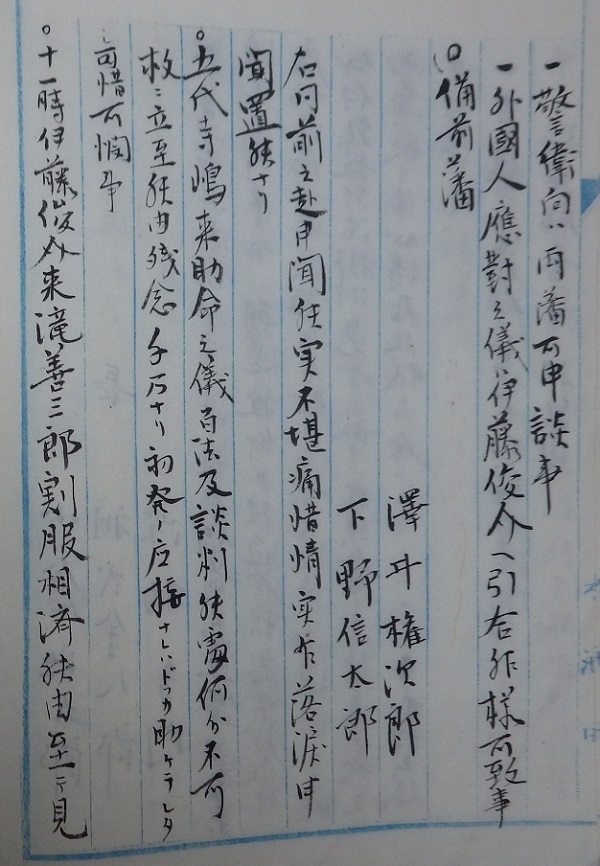 一警衛向ハ両藩可申談事
一外國人應對之儀伊藤俊介へ引合能様可致事
○備前藩
澤井権次郎
下野信太郎
右同前之赴申聞候実不堪痛惜情実乍落涙申
聞置候ナリ
○五代寺嶋来助命之儀百法及談判候處何分不可
救ニ立至候由残念千万ナリ初発ノ応接ナレハドフカ助ケラレタ
シ可惜可憫事
○十一時伊藤俊介来滝善三郎割服相済候由至テ見